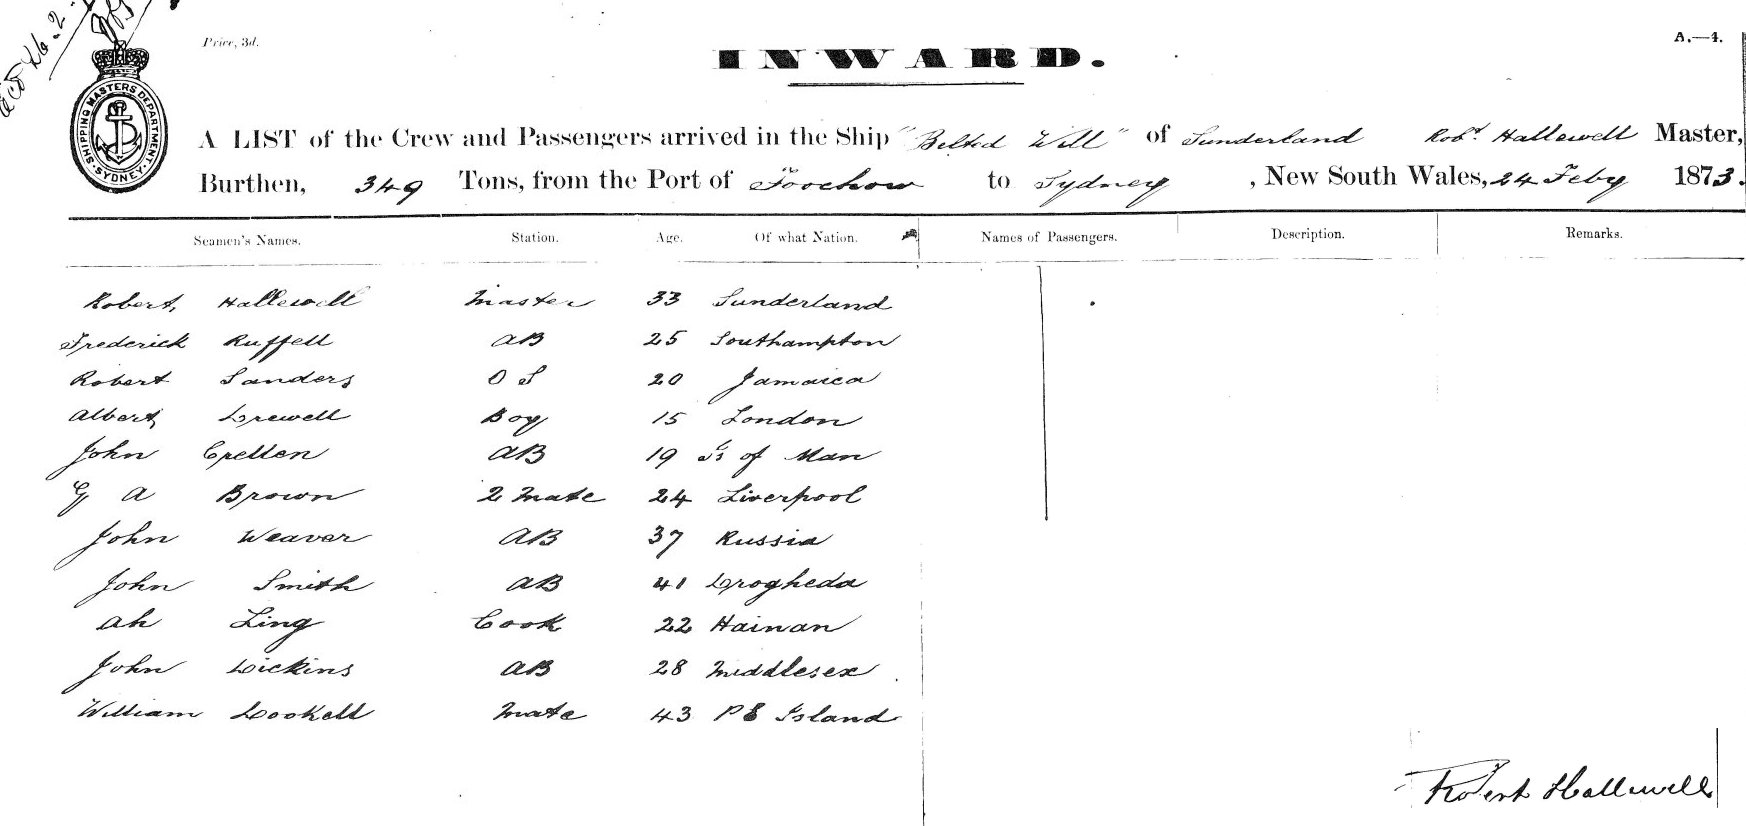 Price, 3d.
A.—4.
SHIPPING MASTERS DEPARTMENT
SYDNEY
INWARD.
A LIST of the Crew and Passengers arrived in the Ship "Belted Will" of Sunderland Robt. Hallewell Master,
Burthen, 349 Tons, from the Port of Foochow to Sydney, New South Wales, 24 Feby 1873.
Seamen's Names. Station. Age. Of what Nation. Names of Passengers. Description. Remarks.
Robert Hallewell Master 33 Sunderland
Frederick Ruffell AB 25 Southampton
Robert Sanders O S 20 Jamaica
Albert Drewell Boy 15 London
John AB 19 Is of Man
G A Brown 2 Mate 24 Liverpool
John Weaver AB 37 Russia
John Smith AB 41 Drogheda
Ah Ling Cook 22 Hainan
John Dickins AB 28 Middlesex
William Mate 43 P E Island
Robert Hallewell